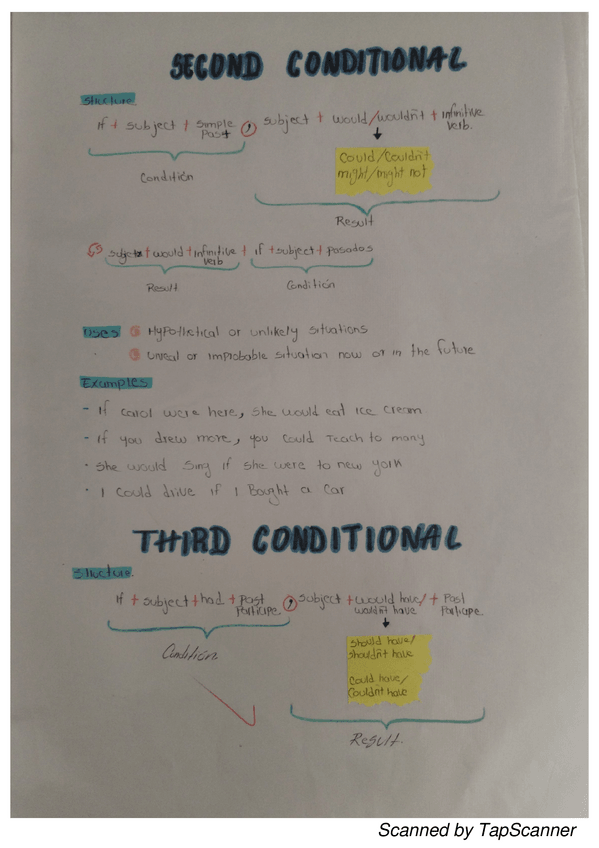 SECOND CONDITIONAL
Structure
If + subject + simple past , subject + would/wouldn't + infinitive verb.
Could/Couldn't
might/might not
Condition
Result
subject + would + infinitive verb + if + subject + pasados
Result Condition
Uses Hypothetical or unlikely situations
Unreal or improbable situation now or in the future
Examples
- If carol were here, she would eat ice cream
- If you drew more, you could Teach to many
- She would sing if she were to new york
- I could drive if I Bought a Car
THIRD CONDITIONAL
Structure.
If + subject + had + Past Participe. , subject + would have/ wouldn't have + Past Participe.
Should have/
shouldn't have
Could have/
Couldn't have
Condition
Result.
Scanned by TapScanner